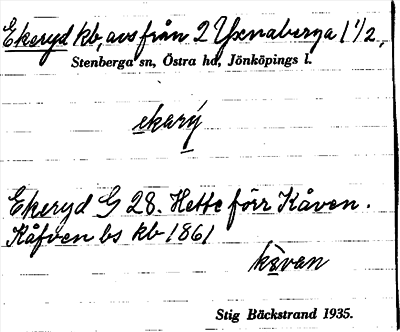 Ekeryd kb, avs från 2 Yxnaberga 1 1/2,
Stenberga sn, Östra hd, Jönköpings l.
ekarý
Ekeryd G 28. Hette förr Kåven.
Kåfven bs kb 1861
kåvan
Stig Bäckstrand 1935.